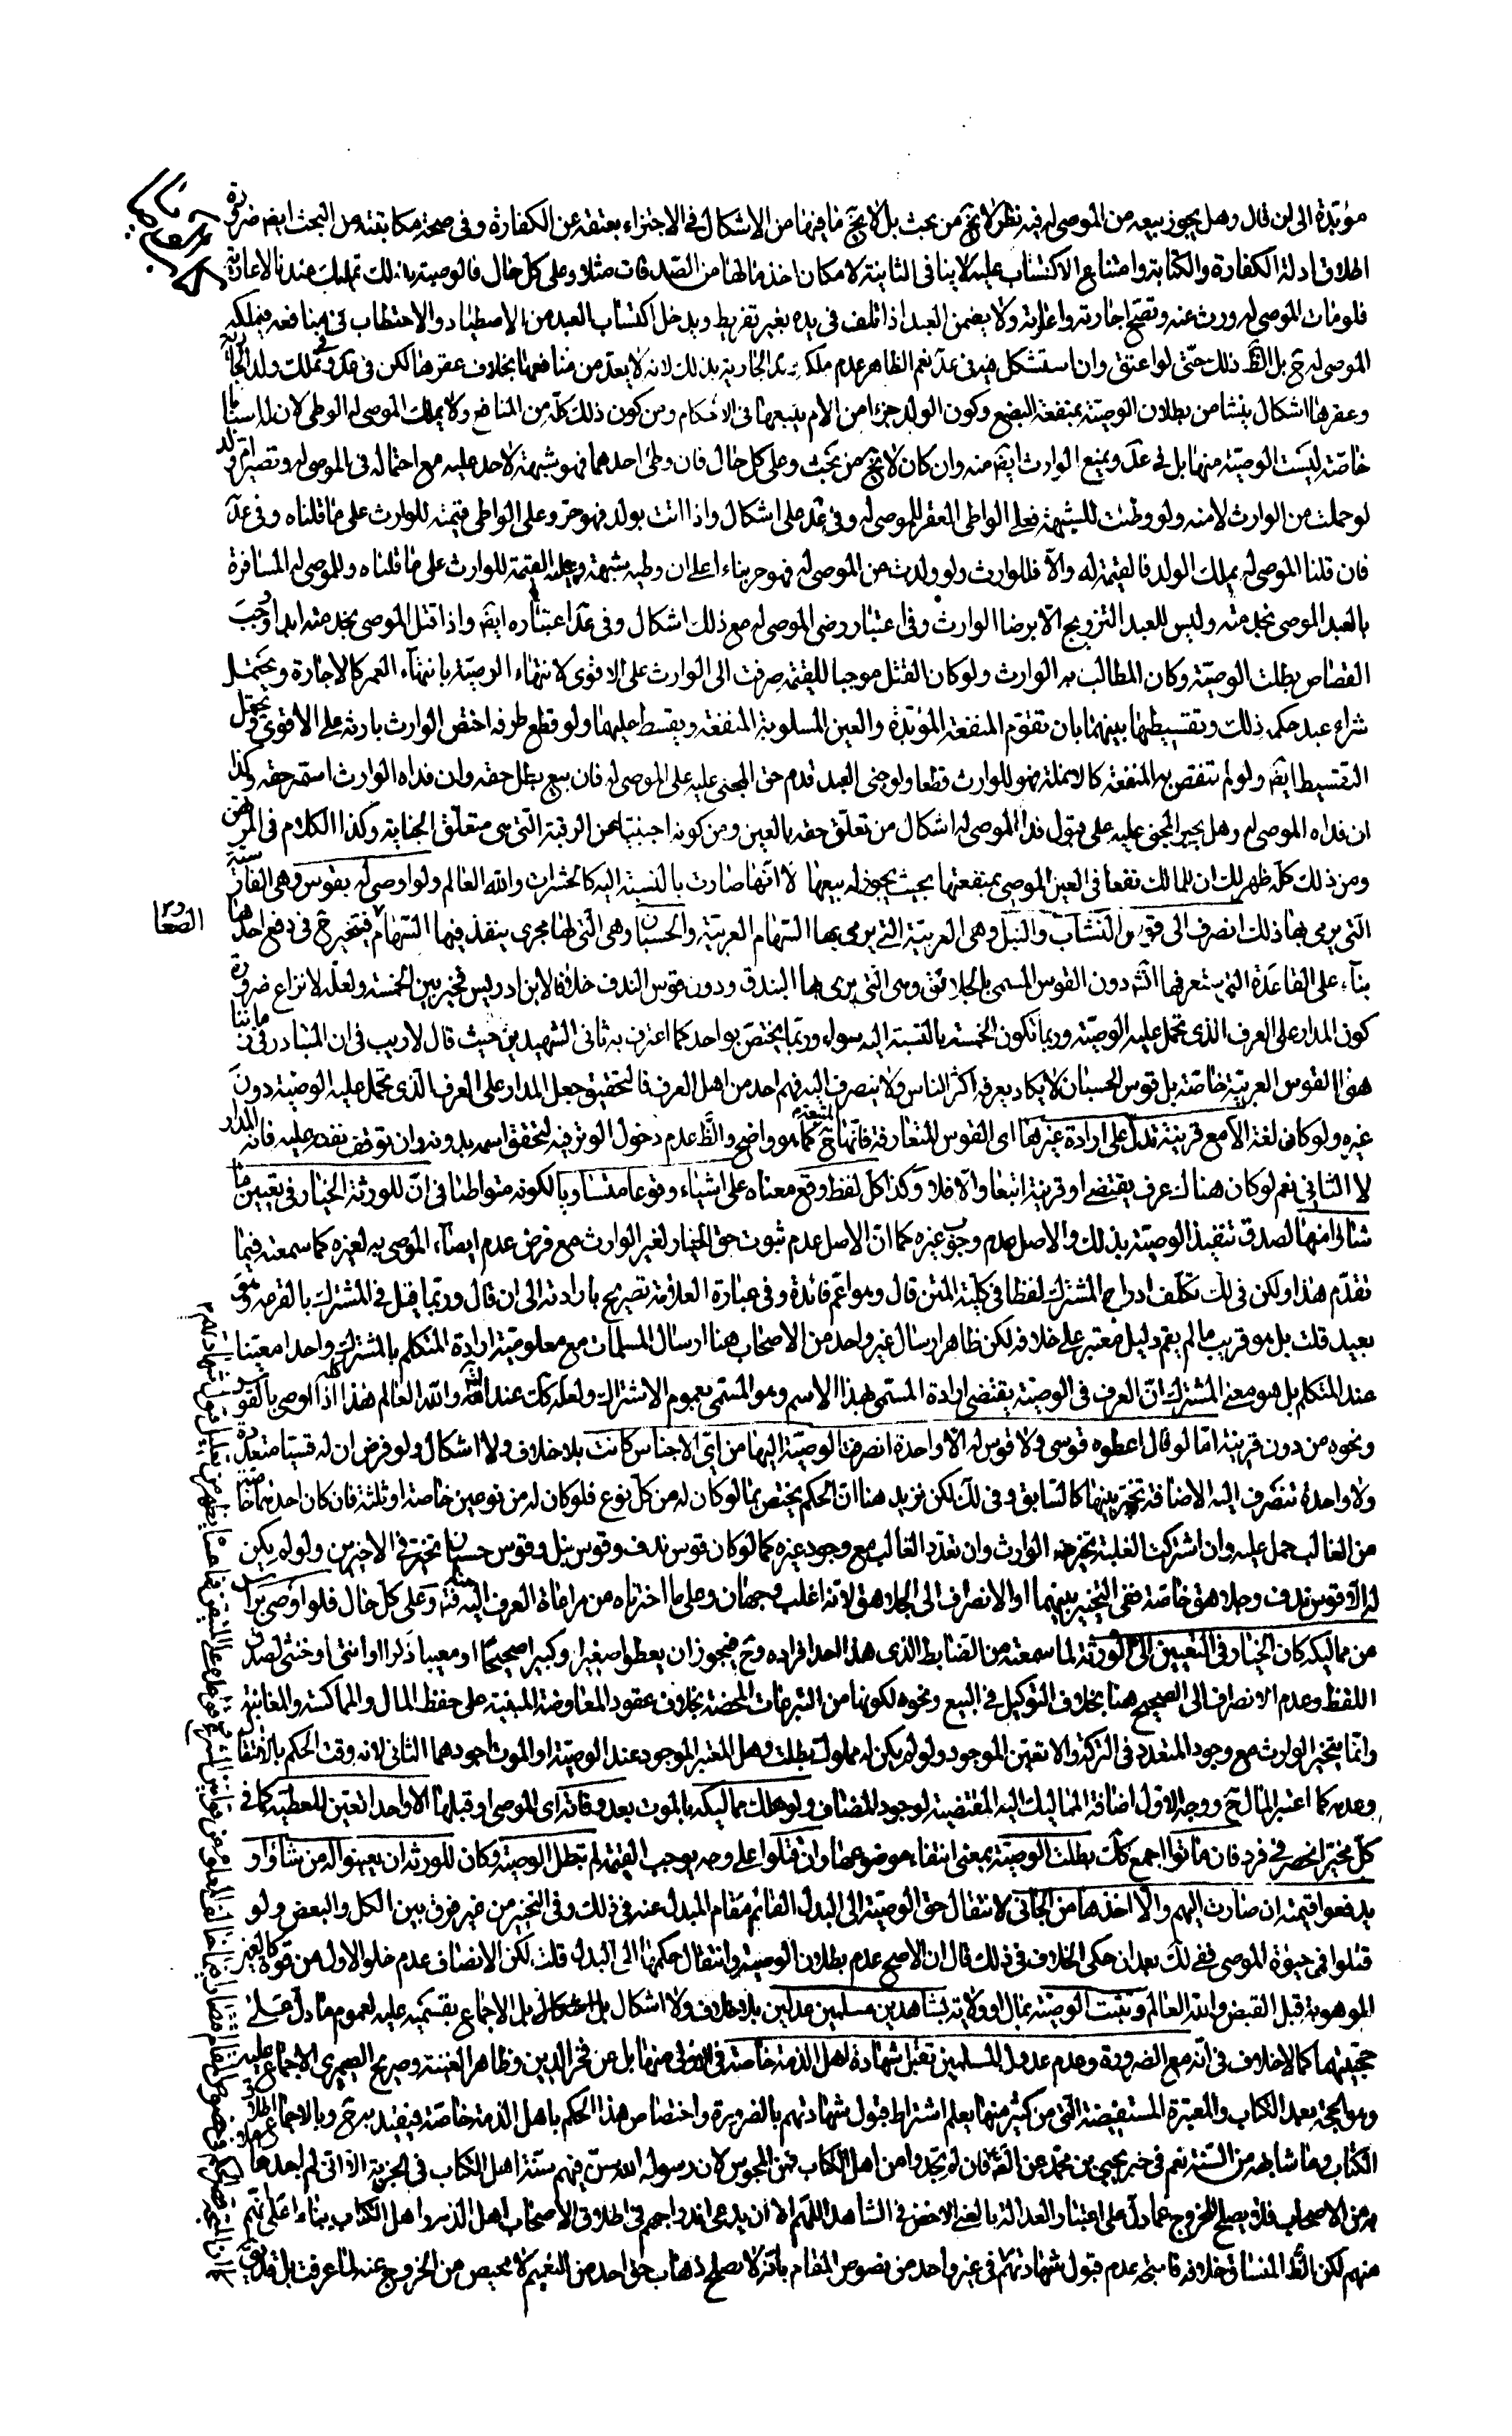 مؤبّدة الى ان قال وهل يجوز بيعه من الموصى له فيه نظر لا يخ من بحث بل لا يخ ما فيها من الاشكال في الاجتزاء بعتقه عن الكفارة وفى صحة مكاتبته من البحث ايضا ضرورة
اطلاق ادلة الكفارة والكتابة وامتناع الاكتساب عليه لا ينافى الثانية لامكان اخذ مالها من الصدقات مثلا وعلى كل حال فالوصية بذلك تمليك عندنا لا عارية
فلو مات الموصى له ورث عنه وتصح اجارته واعارته ولا يضمن العبد اذا تلف فى يده بغير تفريط ويدخل اكتساب العبد من الاصطياد والاحتطاب فى منافعه فيملكه
الموصى له ح بل الظ ذلك حتى لو اعتق وان استشكل فيه فى عد نعم الظاهر عدم ملك ولد الجارية بذلك لانه لا يعد من منافعها بخلاف عقرها لكن فى عد وفى تملك ولد الجارية
وعقرها اشكال ينشا من بطلان الوصيّة بمنفعة البضع وكون الولد جزءا من الام يتبعها فى الاحكام ومن كون ذلك كلّه من المنافع ولا يملك الموصى له الوطى لان له اسبابا
خاصّة ليست الوصيّة منها بل فى عد ويمنع الوارث ايضا منه وان كان لا يخ من بحث وعلى كل حال فان وطئ احدهما فهو شبهة لا حد عليه مع احتماله فى الموصى له وتصير ام ولد
لو حملت من الوارث لا منه ولو وطئت للشبهة فعلى الواطى العقر للموصى له وفى عد على اشكال واذا اتت بولد فهو حر وعلى الواطى قيمته للوارث على ما قلناه وفى عد
فان قلنا الموصى له يملك الولد فالقيمة له والّا فللوارث ولو ولدت من الموصى له فهو حر بناءا على ان وطيه شبهة وعليه القيمة للوارث على ما قلناه وللموصى له المسافرة
بالعبد الموصى بخدمته وليس للعبد التزويج الّا برضا الوارث وفى اعتبار رضى الموصى له مع ذلك اشكال وفى عد اعتباره ايضا واذا قتل الموصى بخدمته ابدا ووجب
القصاص بطلت الوصيّة وكان المطالب به الوارث ولو كان القتل موجبا للقيمة صرفت الى الوارث على الاقوى لانتهاء الوصيّة بانتهاء العمر كالاجارة ويحتمل
شراء عبد حكمه ذلك وتقسيطها بينهما بان تقوّم المنفعة المؤبّدة والعين المسلوبة المنفعة ويقسط عليهما ولو قطع طرفه اختص الوارث بارشه على الاقوى ويحتمل
التقسيط ايضا ولو لم تنقص به المنفعة كالانملة فهو للوارث قطعا ولو جنى العبد قدم حق المجنى عليه على الموصى له فان بيع بطل حقه وان فداه الوارث استمر حقه وكذا
ان فداه الموصى له وهل يجبر المجنى عليه على قبول فدا الموصى له اشكال من تعلّق حقه بالعين ومن كونه اجنبيا عن الرقبة التى هى متعلّق الجناية وكذا الكلام فى المرتهن
ومن ذلك كلّه ظهر لك ان للمالك نفعا فى العين الموصى بمنفعتها بحيث يجوز له بيعها لا انها صارت بالنسبة اليه كالحشرات والله العالم ولو اوصى له بقوس وهى الفارسية
التى يرمى بها ذلك انصرف الى قوس النشاب والنبل وهى العربيّة التى يرمى بها السهام العربيّة والحسبان وهى التى لها مجرى ينفذ فيها السهام الصغار فيتخير ح فى دفع احدها
بناء على القاعدة التى ستعرفها انشـ دون القوس المسمى بالجلاهق وهى التى يرمى بها البندق ودون قوس الندف خلافا لابن ادريس فخير بين الخمسة ولعلّه لا نزاع ضرورة
كون المدار على العرف الذى تحمل عليه الوصيّة وربما تكون الخمسة بالنسبة اليه سواء وربما يختص بواحد كما اعترف به ثانى الشهيدين حيث قال لا ريب فى ان المتبادر فى زماننا
هو القوس العربيّة خاصّة بل قوس الحسبان لا يكاد يعرفه اكثر الناس ولا ينصرف اليه فهم احد من اهل العرف فالتحقيق جعل المدار على العرف الذى تحمل عليه الوصية دون
غيره ولو كان لغة الّا مع قرينة تدلّ على ارادة غيرها اى القوس المتعارفة فانّها ح المتبعة كما هو واضح والظ عدم دخول الوتر فيه لتحقق اسمه بدونه وان توقف نفعه عليه فانه المدار
لا الثانى نعم لو كان هناك عرف يقتضى او قرينة اتبعا والّا فلا وكذا كل لفظ وقع معناه على اشياء وقوعا متساويا لكونه متواطئا فى انّ للورثة الخيار فى تعيين ما
شاؤا منها لصدق تنفيذ الوصيّة بذلك والاصل عدم وجوب غيره كما انّ الاصل عدم ثبوت حق الخيار لغير الوارث مع فرض عدم ايصاء الموصى به لغيره كما سمعته فيما
تقدّم هذا ولكن فى لك تكلّف ادراج المشترك لفظا فى كلّية المتن قال وهو اعمّ فائدة وفى عبارة العلامة تصريح بارادته الى ان قال وربما قيل فى المشترك بالقرعه وهو
بعيد قلت بل هو قريب ما لم يقم دليل معتبر على خلافه لكن ظاهر ارسال غير واحد من الاصحاب هنا ارسال المسلمات مع معلوميّة ارادة المتكلم بالمشترك واحدا معينا
عند المتكلم بل هو معنى المشترك انّ العرف فى الوصيّة يقتضى ارادة المسمّى بهذا الاسم وهو المسمّى بعموم الاشتراك ولعلّه كك عند العرف والله العالم هذا كله اذا اوصى بالقوس
ونحوه من دون قرينة امّا لو قال اعطوه قوسى ولا قوس له الّا واحدة انصرفت الوصيّة اليها من اىّ الاجناس كانت بلا خلاف ولا اشكال ولو فرض ان له قسيّا متعددة
ولا واحدة تنصرف اليه الاضافة تخيّر بينها كالسابق وفى لك لكن نزيد هنا انّ الحكم يختص بما لو كان له من كلّ نوع فلو كان له من نوعين خاصّة او ثلثة فان كان احدهما خاصّة
من الغالب حمل عليه وان اشتركت الغلبة تخير الوارث وان تعدّد الغالب مع وجود غيره كما لو كان قوس ندف وقوس نبل وقوس حسبان تخير فى الاخيرين ولو لم يكن
له الّا قوس ندف وجلاهق خاصّة ففى التخيير بينهما او الانصراف الى الجلاهق لانه اغلب وجهان وعلى ما اخترناه من مراعاة العرف اليه منه وعلى كلّ حال فلو اوصى براس
من مماليكه كان الخيار فى التعيين الى الورثة لما سمعته من الضابط الذى هذا احد افراده وح فيجوز ان يعطوا صغيرا وكبيرا صحيحا او معيبا ذكرا او انثى او خنثى لصدق
اللفظ وعدم الانصراف الى الصحيح هنا بخلاف التوكيل فى البيع ونحوه لكونها من التبرعات المحضة بخلاف عقود المعاوضة المبنية على حفظ المال والمماكسة والمغابنة
وانّما يتخير الوارث مع وجود المتعدد فى التركة والّا تعيّن الموجود ولو لم يكن له مملوك بطلت وهل المعتبر الموجود عند الوصيّة او الموت اجودهما الثانى لانه وقت الحكم بالانتقال
وعدمه كما اعتبر المال ح ووجه الاول اضافة المماليك اليه المقتضية لوجود المضاف ولو هلك مماليكه بالموت بعد وفاته اى الموصى او قبلها الّا واحدا تعين للعطية كما فى
كلّ مخيّر انحصر فى فرد فان ماتوا اجمع كك بطلت الوصيّة بمعنى انتفاء موضوعها وان قتلوا على وجه يوجب القيمة لم تبطل الوصيّة وكان للورثة ان يعينوا له من شاؤا و
يدفعوا قيمته ان صارت اليهم والّا اخذها من الجانى لانتقال حق الوصيّة الى البدل القائم مقام المبدل عنه فى ذلك وفى التخيير من غير فرق بين الكل والبعض ولو
قتلوا فى حيوة الموصى ففى لك بعد ان حكى الخلاف فى ذلك قال ان الاصح عدم بطلان الوصيّة وانتقال حكمها الى البدل قلت لكن الانصاف عدم خلو الاول من قوة كالعين
الموهوبة قبل القبض والله العالم وتثبت الوصيّة بمال او ولاية بشاهدين مسلمين عدلين بلا خلاف ولا اشكال بل الاجماع بقسميه عليه لعموم ما دلّ على
حجيّتهما كما لا خلاف فى انّه مع الضرورة وعدم عدول المسلمين تقبل شهادة اهل الذمة خاصة فى الاولى منهما بل عن فخر الدين وظاهر الغنية وصريح الصيمرى الاجماع عليه
وهو الحجة بعد الكتاب والمعتبرة المستفيضة التى من كثير منها يعلم اشتراط قبول شهادتهم بالضرورة واختصاص هذا الحكم باهل الذمة خاصّة فيقيد به ح وبالاجماع اطلاق
الكتاب وما شابهه من السنة نعم فى خبر يحيى بن محمد عن الصّ فان لم تجدوا من اهل الكتاب فمن المجوس لان رسول الله سن فيهم سنة اهل الكتاب فى الجزية الّا انى لم اجد عاملا
به من الاصحاب فلا يصلح للخروج عما دلّ على اعتبار العدالة بالمعنى الاخص فى الشاهد اللهم الّا ان يدعى اندراجهم فى اطلاق الاصحاب اهل الذمة واهل الكتاب بناءا على انّهم
منهم لكن الظ المنساق خلافه فاتجه عدم قبول شهادتهم فى غير واحد من نصوص المقام بانّه لا يصلح ذهاب حق احد من التعميم لا محيص من الخروج عنه لما عرفت بل قد يقال